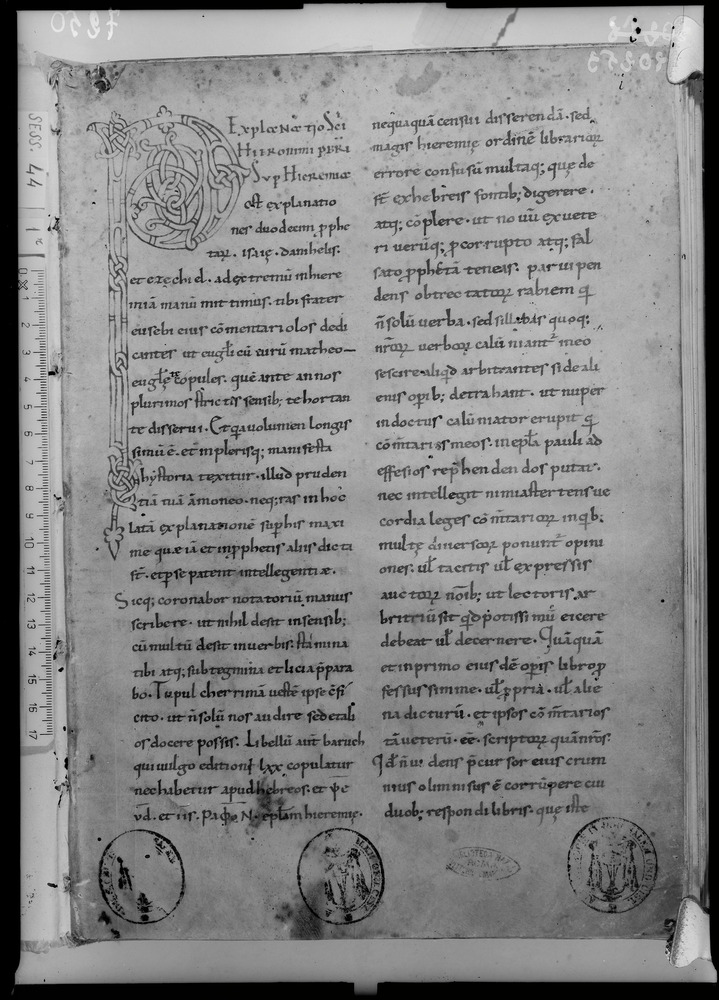 Explanatio Sci
Hieronimi pbri
Sup Hieremiā
ost explanatio
nes duodecim pphe
tarꝝ. isaię. damhelis.
et ezechiel. ad extremū inhiere
miā manū mittimus. tibi frater
eusebi eius cōmentariolos dedi
cantes ut eugl̄i cū eurū matheo
eugl̄ste copules. quē ante annos
plurimos strictis sensib; te hortan
te disserui. Et qa uolumen longis
simū ē. et inplerisq; manifesta
hystoria texitur. illud pruden
tiā tuā āmoneo. neq;ras in hoc
latā explanationē sup his maxi
me quæ iā et inpphetis aliis dicta
st̄. et p se patent intellegentiæ.
Sicq; coronabor notatoriū manus
scribere. ut nihil desit insensib;
cū multū desit inuerbis. stamina
tibi atq; subtegmina et licia p̄para
bo. Tu pulcherrimā uestē ipse cōfi
cito. ut n̄ solū nos audire sed etali
os docere possis. Libellū aut̄ baruch
qui uulgo editioni lxx copulatur
nec habetur apud hebreos. et
epl̄am hieremię.
neq̄uaquā censui disserendā. sed
magis hieremię ordinē librariorꝝ
errore confusū multaq; quę de
st̄ ex hebreis fontib; digerere.
atq; cōplere. ut no uū ex uete
ri uerūq; p corrupto atq; fal
sato pphetā teneas. parui pen
dens obtrectatorꝝ rabiem q̄
n̄ solū uerba. sed sillabas quoq;
nr̄orꝝ uerborꝝ calūniant᷑ ineo
se scire aliqd arbitrantes si de ali
enis opib; detrahant. ut nuper
indoctus calūniator erupit q̄
cōm̄tarios meos. in epl̄a pauli ad
effesios rephendendos putat.
nec intellegit nimia stertens ue
cordia leges cōm̄tariorꝝ in qb;
multę diuersorꝝ ponunt᷑ opini
ones. ul̄ tacitis ul̄ expressis
auctorꝝ noīb; ut lectoris ar
britriū sit qd potissimū eicere
debeat ul̄ decernere. Quāquā
et in primo eius dē opis libro p
fessus sim me. ul̄ ppria. ul̄ alie
na dicturū. et ipsos cōm̄tarios
tā ueterū. eē. scriptorꝝ quā nr̄os.
Id n̄ uidens p̄cursor eius crun
nius olim nisus ē corrūpere cui
duob; respondi libris. quę iste
SESS. 44